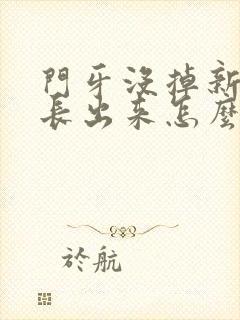 門牙沒掉新
長出來怎麼
於航